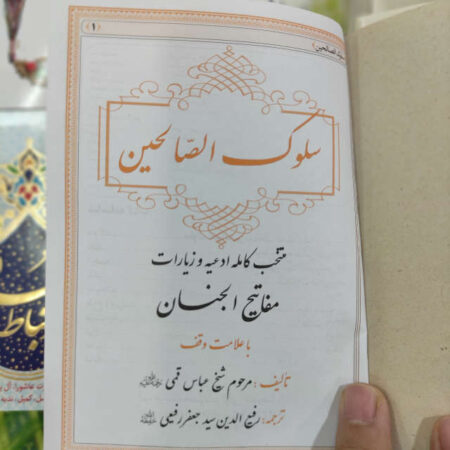 ﴿۱﴾
سلوک الصّالحین
سلوک الصّالحین
منتخب کامله ادعیه و زیارات
مفاتیح الجنان
با علامت وقف
تألیف: مرحوم شیخ عباس قمی
ترجمه: رفیع الدین سید جعفر رفیعی